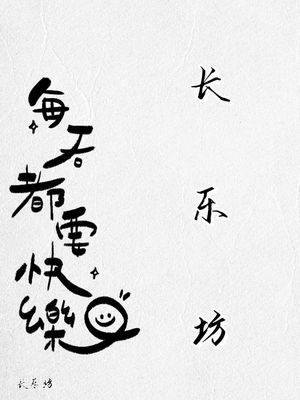 长乐坊
每天都要快樂
长乐坊